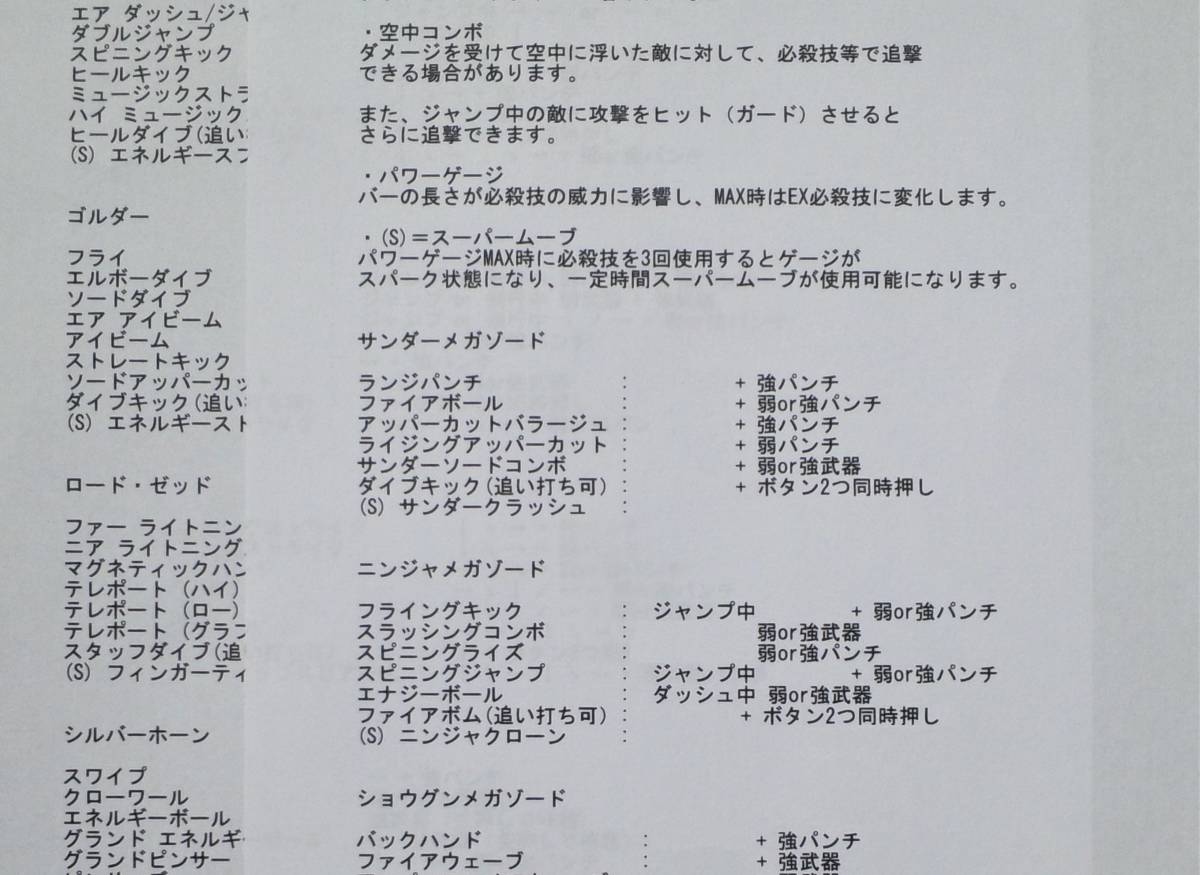 エア ダッシュ/ジャ
ダブルジャンプ
スピニングキック
ヒールキック
ミュージックストラ
ハイ ミュージック
ヒールダイブ(追い
(S) エネルギースフ
ゴルダー
フライ
エルボーダイブ
ソードダイブ
エア アイビーム
アイビーム
ストレートキック
ソードアッパーカッ
ダイブキック(追い
(S) エネルギースト
ロード・ゼッド
ファー ライトニン
ニア ライトニング
マグネティックハン
テレポート (ハイ)
テレポート (ロー)
テレポート (グラフ
スタッフダイブ(追
(S) フィンガーティ
シルバーホーン
スワイプ
クローワール
エネルギーボール
グランド エネルギ
グランドピンサー
・空中コンボ
ダメージを受けて空中に浮いた敵に対して、必殺技等で追撃
できる場合があります。
また、ジャンプ中の敵に攻撃をヒット (ガード) させると
さらに追撃できます。
・パワーゲージ
バーの長さが必殺技の威力に影響し、MAX時はEX必殺技に変化します。
・(S)＝スーパームーブ
パワーゲージMAX時に必殺技を3回使用するとゲージが
スパーク状態になり、一定時間スーパームーブが使用可能になります。
サンダーメガゾード
ランジパンチ : + 強パンチ
ファイアボール : + 弱or強パンチ
アッパーカットバラージュ : + 強パンチ
ライジングアッパーカット : + 弱パンチ
サンダーソードコンボ : + 弱or強武器
ダイブキック(追い打ち可) : + ボタン2つ同時押し
(S) サンダークラッシュ :
ニンジャメガゾード
フライングキック : ジャンプ中 + 弱or強パンチ
スラッシングコンボ : 弱or強武器
スピニングライズ : 弱or強パンチ
スピニングジャンプ : ジャンプ中 + 弱or強パンチ
エナジーボール : ダッシュ中 弱or強武器
ファイアボム(追い打ち可) : + ボタン2つ同時押し
(S) ニンジャクローン :
ショウグンメガゾード
バックハンド : + 強パンチ
ファイアウェーブ : + 強武器